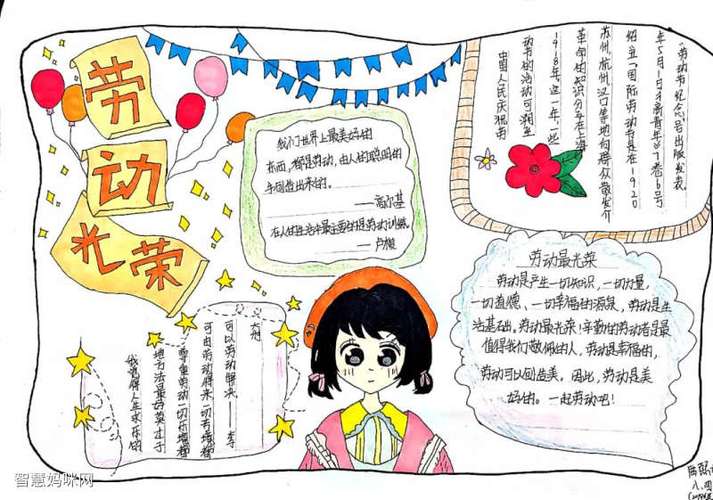 劳
动
光
荣
我们世界上最美好的
东西,都是劳动,由人的聪明的
手创造出来的。
——高尔基
在人的生活中最主要的是劳动训练。
——卢梭
中国人民庆祝劳
动节的活动可溯至
1918年,这一年,一些
革命的知识分子在上海
苏州、杭州、汉口等地向群众散发介
绍 "国际劳动节是在1920
年5月1日《新青年》7卷6号
"劳动节纪念"号出版发表。
我觉得人生求乐的
方法最好莫过于
尊重劳动一切乐境都
可由劳动得来一切苦境都
可以劳动解决——李
大钊
劳动最光荣
劳动是产生一切知识,一切力量,
一切道德、一切幸福的源泉,劳动是生
活基础,劳动最光荣!辛勤的劳动者是最
值得我们敬佩的人,劳动是幸福的,
劳动可以创造美,因此,劳动是美
好的。一起劳动吧!
智慧妈咪网